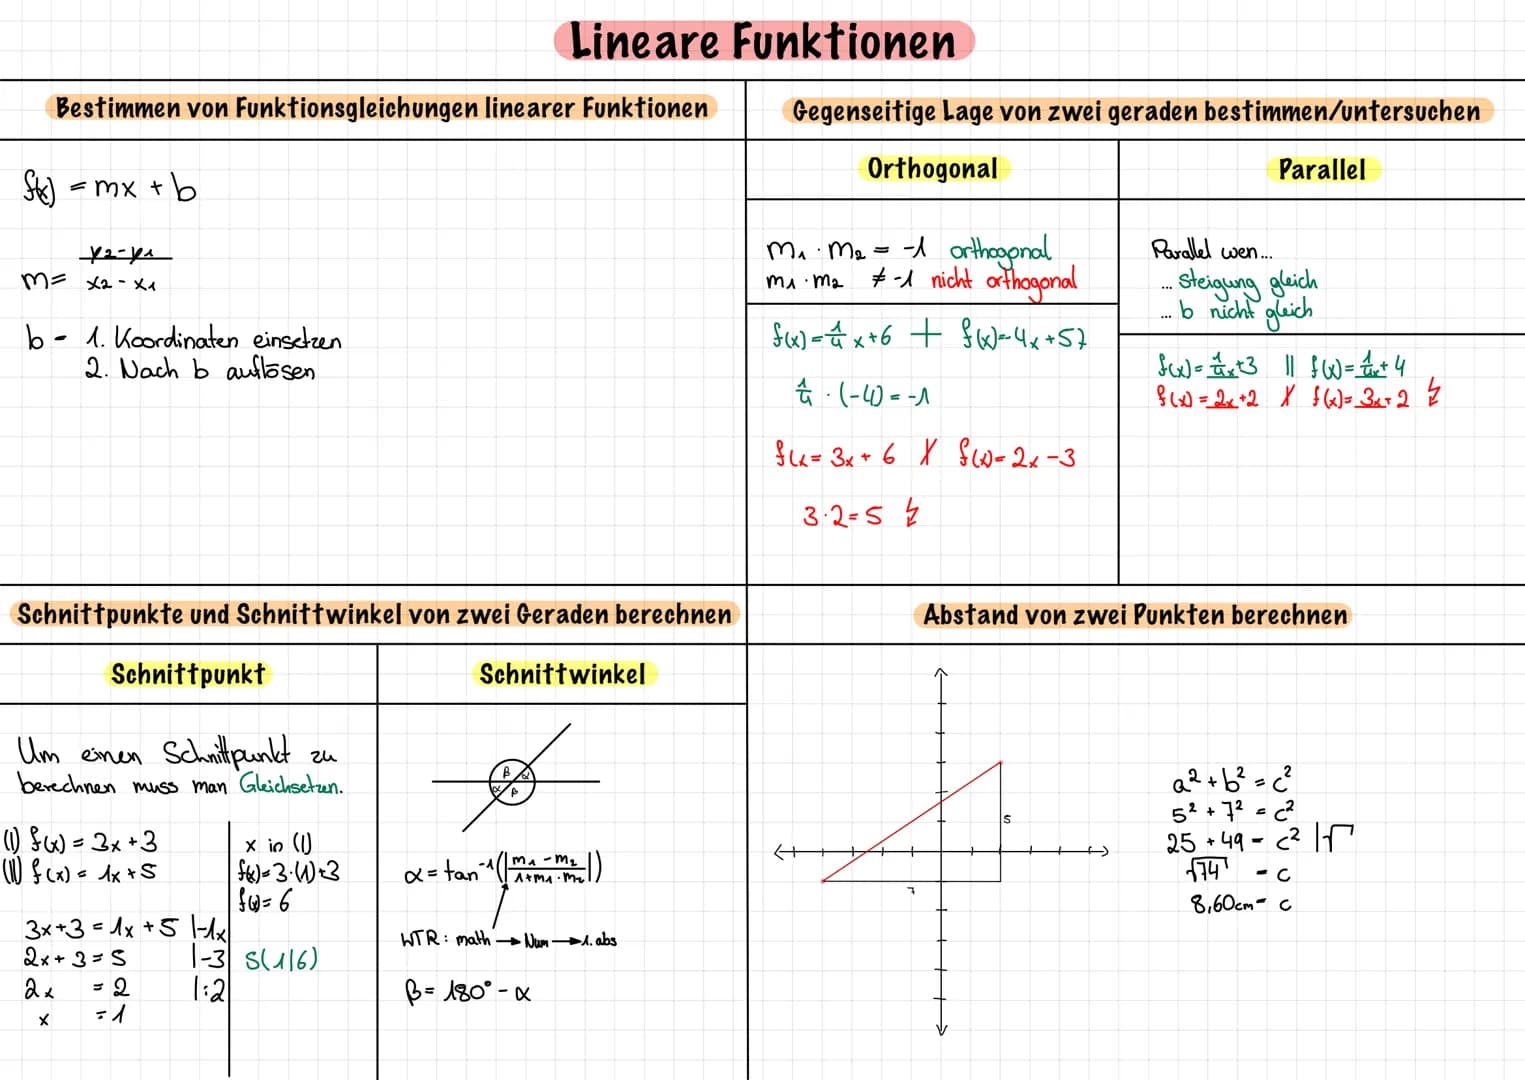 Lineare Funktionen
Bestimmen von Funktionsgleichungen linearer Funktionen
f(x) = mx + b
m = y2-y1 / x2-x1
b - 1. Koordinaten einsetzen
2. Nach b auflösen
Gegenseitige Lage von zwei geraden bestimmen/untersuchen
Orthogonal
m1 · m2 = -1 orthogonal
m1 · m2 ≠ -1 nicht orthogonal
f(x) = 1/4 x + 6 + f(x) = -4x + 57
1/4 · (-4) = -1
f(x = 3x + 6 f(x) = 2x - 3
3·2=5
Parallel
Parallel wen...
... Steigung gleich
... b nicht gleich
f(x) = 1/4x+3 || f(x) = 1/4x + 4
f(x) = 2x+2 f(x) = 3x+2
Schnittpunkte und Schnittwinkel von zwei Geraden berechnen
Schnittpunkt
Um einen Schnittpunkt zu
berechnen muss man Gleichsetzen.
(I) f(x) = 3x+3
(II) f(x) = 1x+5
3x+3 = 1x+5 |-1x
2x+3 = 5 |-3
2x = 2 |:2
x = 1
x in (I)
f(x)=3·(1)+3
f(x)= 6
S(1|6)
Schnittwinkel
β α
α β
α = tan⁻¹(|m1-m2 / 1+m1·m2|)
WTR: math → Num → 1. abs
β = 180° - α
Abstand von zwei Punkten berechnen
5
7
a² + b² = c²
5² + 7² = c²
25 + 49 = c² |√
√74 = c
8,60cm = c